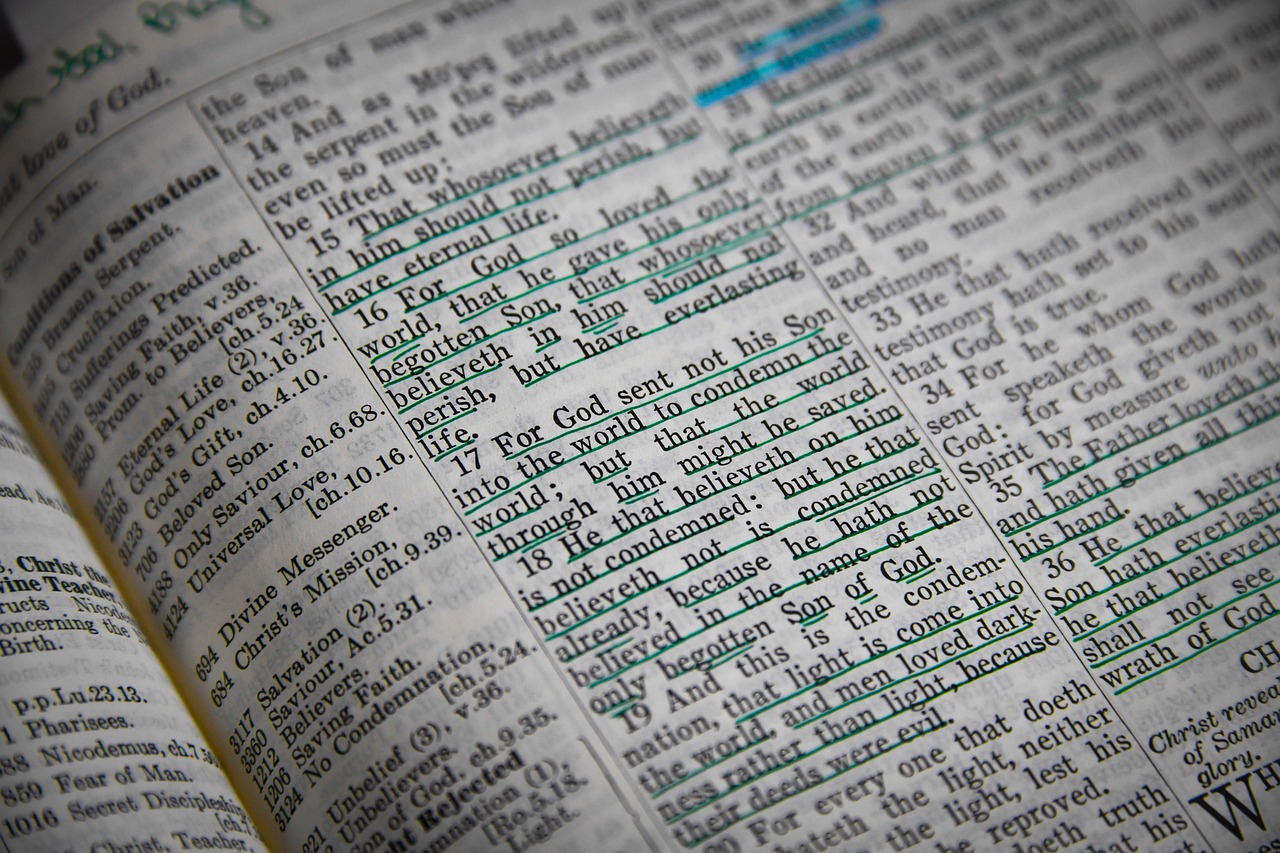 love of God.
Son of Man.
Conditions of Salvation
Brazen Serpent.
Crucifixion.
Sufferings Predicted.
Saving Faith, v.36.
Prom. to Believers,
[ch.5.24
Eternal Life (2), v.36.
God's Love, ch.16.27.
God's Gift, ch.4.10.
Beloved Son.
4188 Only Saviour, ch.6.68.
4124 Universal Love,
[ch.10.16.
694 Divine Messenger.
684 Christ's Mission,
[ch.9.39.
3117 Salvation (2).
3360 Saviour, Ac.5.31.
1212 Believers.
1206 Saving Faith.
3124 No Condemnation,
[ch.5.24.
Unbelief (3), v.36.
Unbelievers.
Son of God, ch.9.35.
Rejected
(1),
[Ro.5.18.
Light.
Christ the
Teacher,
Birth.
p.p.Lu.23.13.
Pharisees.
Nicodemus, ch.7.50
859 Fear of Man.
1016 Secret Discipleship
Christ, Teacher,
the Son of man which
heaven.
14 And as Mo'ses lifted up
the serpent in the wilderness,
even so must the Son of man
be lifted up:
15 That whosoever believeth
in him should not perish, but
have eternal life.
16 For God so loved the
world, that he gave his only
begotten Son, that whosoever
believeth in him should not
perish, but have everlasting
life.
17 For God sent not his Son
into the world to condemn the
world; but that the world
through him might be saved.
18 He that believeth on him
is not condemned: but he that
believeth not is condemned
already, because he hath not
believed in the name of the
only begotten Son of God.
19 And this is the condem-
nation, that light is come into
the world, and men loved dark-
ness rather than light, because
their deeds were evil.
20 For every one that doeth
hateth the light, neither
the light, lest his
be reproved.
doeth truth
that his
30
31 He that cometh from
is above all: he that is of the
earth is earthly, and speaketh
of the earth: he that cometh
from heaven is above all.
32 And what he hath seen
and heard, that he testifieth;
and no man receiveth his
testimony.
33 He that hath received his
testimony hath set to his seal
that God is true.
34 For he whom God hath
sent speaketh the words
God: for God giveth not
Spirit by measure unto
35 The Father loveth the
and hath given all
his hand.
36 He that
Son hath
he that believeth
shall not see
wrath of God
CH
Christ
of
glory.